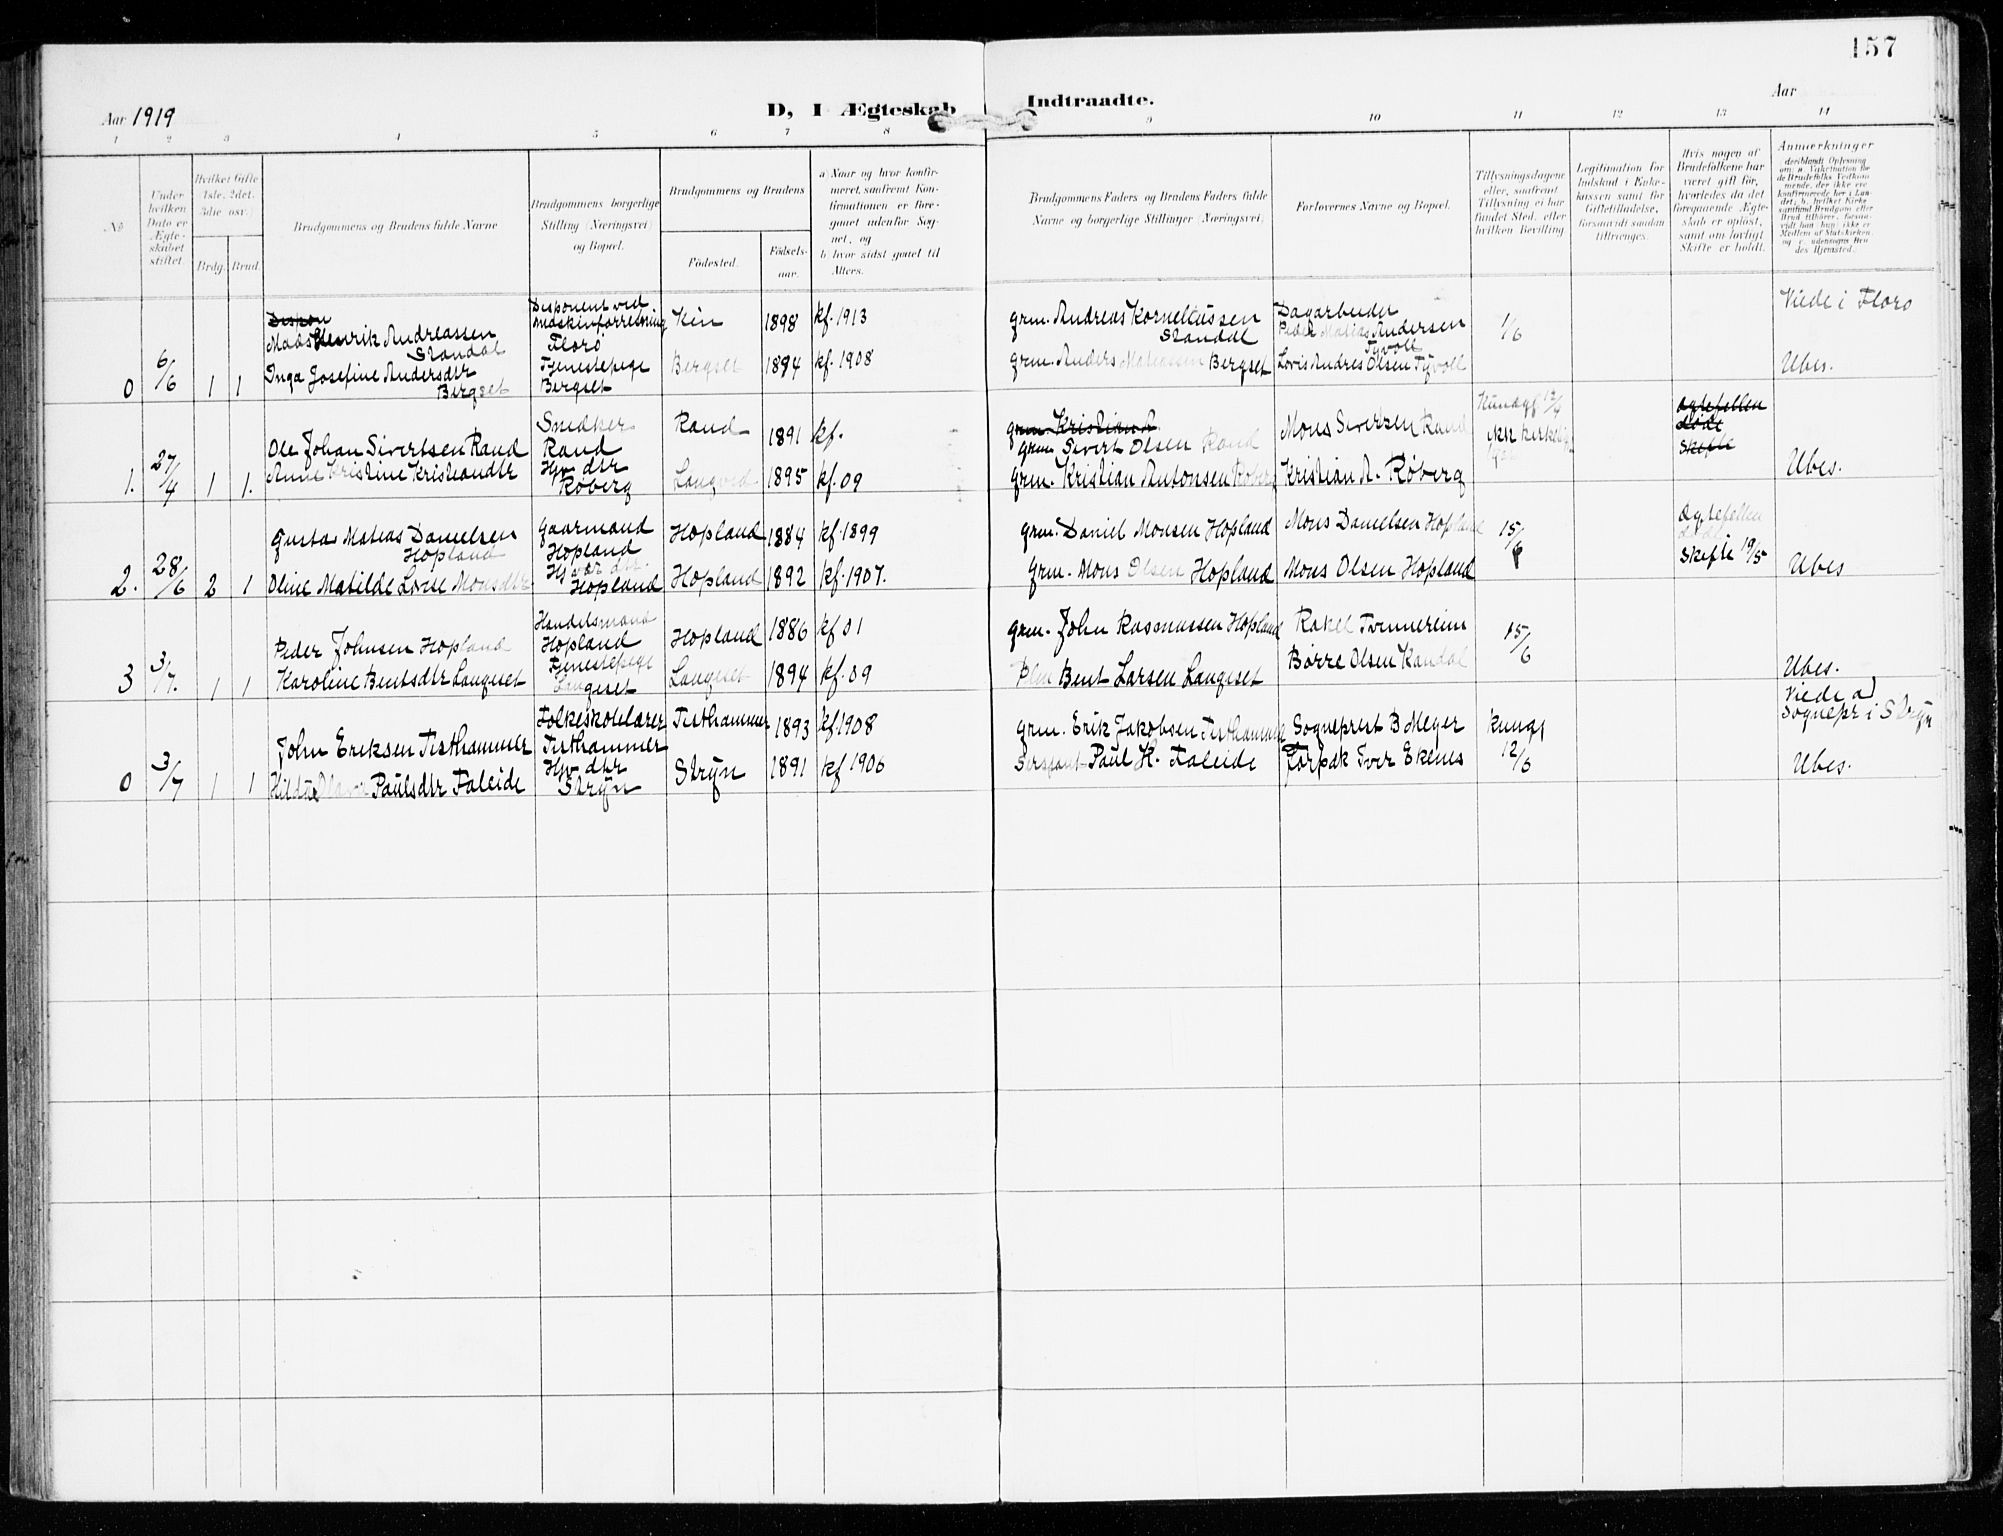 157
Aar 1919
D, I Ægteskab Indtraadte.
Aar
1 2 3 4 5 6 7 8 9 10 11 12 13 14
No
Under hvilken Dato er Ægteskabet stiftet.
Hvilket Gifte 1ste, 2det, 3die osv.)
Brdg. Brud.
Brudgommens og Brudens fulde Navne
Brudgommens borgerlige Stilling (Næringsvei) og Bopæl.
Brudgommens og Brudens
Födested.
Födselsaar.
a) Naar og hvor konfirmeret, saafremt Konfirmationen er foregaaet udenfor Sognet, og
b) hvor sidst gaaet til Alters.
Brudgommens Faders og Brudens Faders fulde Navne og borgerlige Stillinger (Næringsvei)
Forlovernes Navne og Bopæl.
Tillysningsdagene eller, saafremt Tillysning ei har fundet Sted, efter hvilken Bevilling.
Legitimation for Indskud i Enkekassen samt for Giftetilladelse, forsaavidt saadan tiltrænges.
Hvis nogen af Brudefolkene har været gift før, hvorledes da det foregaaende Ægteskab er opløst, samt om lovligt Skifte er holdt.
Anmærkninger
0 6/6 1 1
Dispon
Mads Henrik Andreassen
Standal
Inga Josefine Andersdtr
Bergset
Disponent ved
maskinforretning
Florö
Tjenestepige
Bergset
Kin 1898 kf. 1913
Bergset 1894 kf. 1908
grm. Andreas Korneliussen
Standal
grm. Anders Matiassen Bergset
Dagarbeider
Peder Matias Andersen
Tyvoll
Lovis Andres Olsen Tyvoll
1/6
Viede i Florö
Ubes.
1. 27/4 1 1.
Ole Johan Sivertsen Rand
Anne Kristine Kristiandtr
Snedker
Rand
Hjv dtr
Røberg
Rand 1891 kf.
1895 kf. 09
grm. Kristian A
grm. Sivert Olsen Rand
grm. Kristian Antonsen Røberg
Mons Sivertsen Rand
Kristian A. Røberg
Kundgj 12/4
Ægtefellen
död
Skifte
Ubes.
2. 28/6 2 1
Gustav Matias Danielsen
Hopland
Oline Matilde Lovise Monsdtr
Gaarmand
Hopland
Hopland
Hopland 1884 kf. 1899
Hopland 1892 kf. 1907.
grm. Daniel Monsen Hopland
grm. Mons Olsen Hopland
Mons Danielsen Hopland
Mons Olsen Hopland
15/6
Ægtefellen
död
Skifte 19/5
Ubes
3 3/7. 1 1
Peder Johnsen Hopland
Karoline Bentsdtr Langeset
Handelsmand
Hopland
Tjenestepige
Langeset
Hopland 1886 kf 01
Langeset 1894 kf. 09
grm. John Rasmussen Hopland
Bent Larsen Langeset
Rakel Tvinnereim
Børre Olsen Kandal
15/6
Ubes.
0 3/7 1 1
John Eriksen Tisthammer
Paulsdtr Faleide
Folkeskolelærer
Tisthammer
Hjv dtr
Stryn
Tisthammer 1893 kf 1908
Stryn 1891 kf 1906
grm. Erik Jakobsen Tisthammer
Sersjant Paul H. Faleide
Sogneprest B Meyer
Forpak Iver Ekenes
kungj
12/6
Viede ad
Sognepr i Stryn
Ubes.